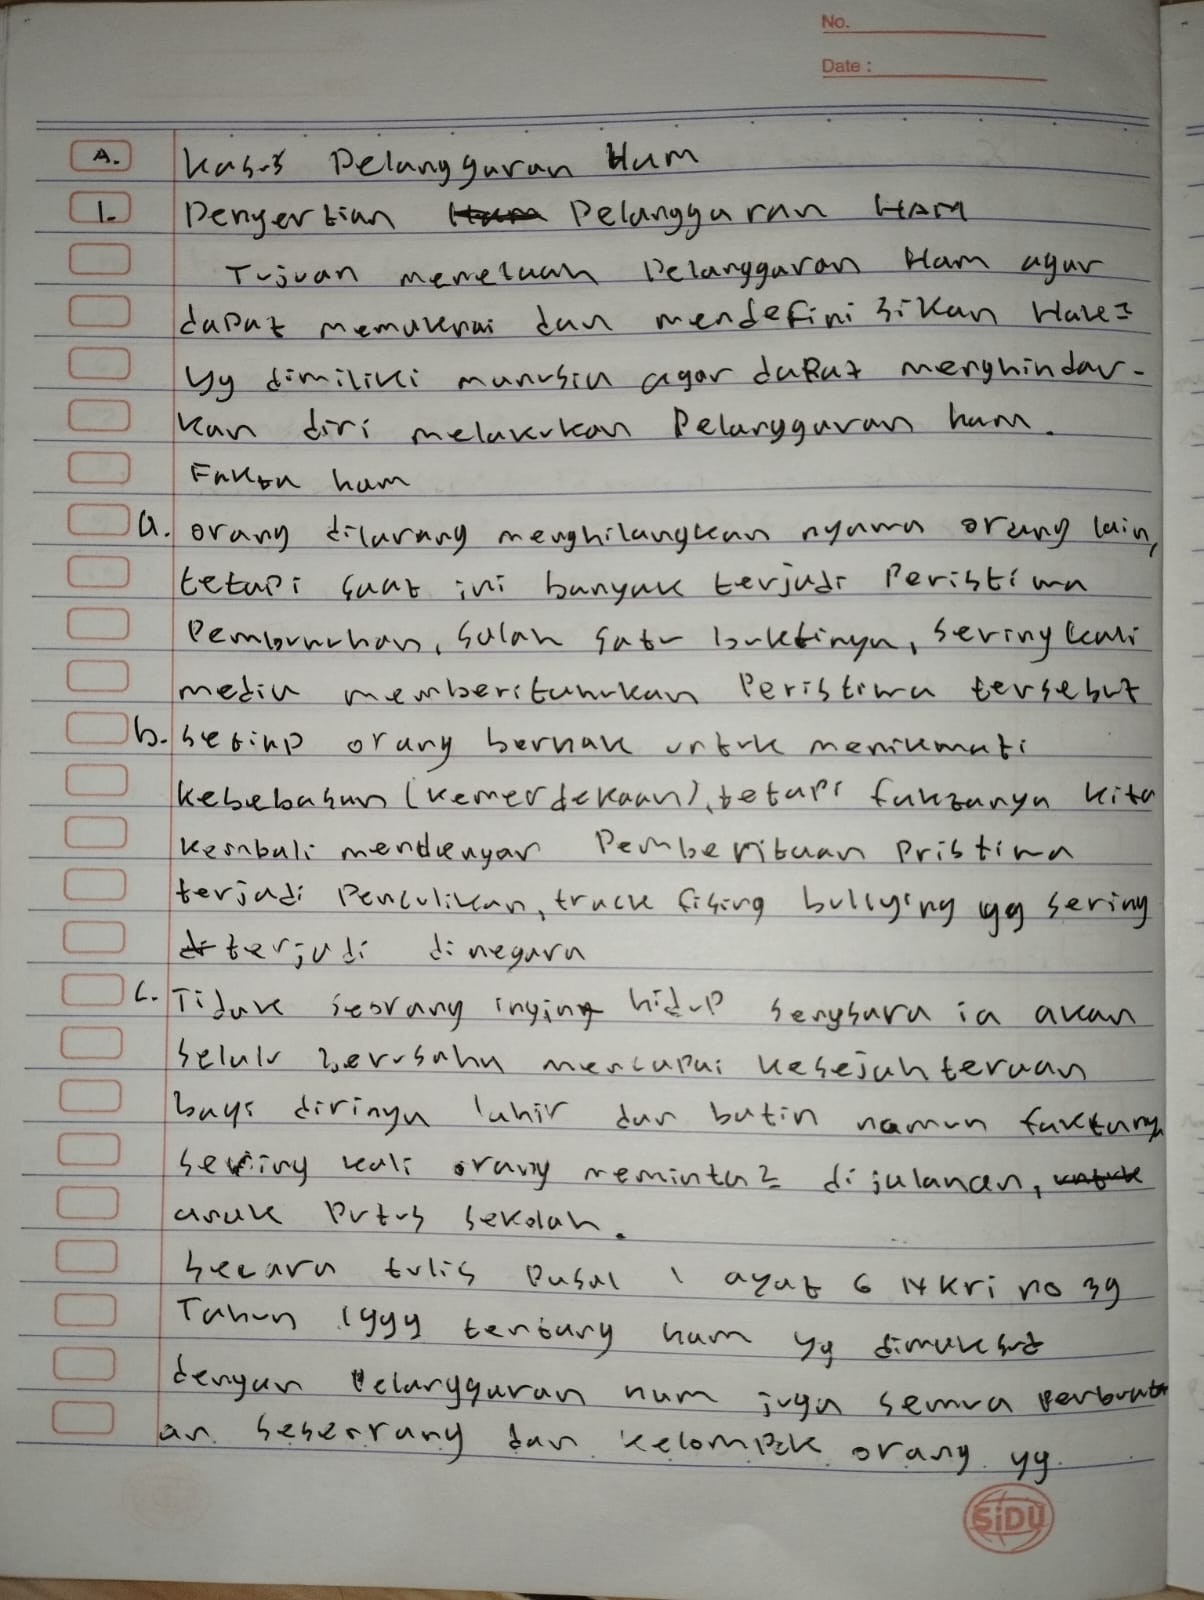 No.
Date :
A. Kasus Pelanggaran Ham
1. Pengertian Pelanggaran HAM
Tujuan Pelanggaran Ham agar
dapat dan mendefinisikan
yg dimiliki manusia agar dapat menghindar-
kan diri melakukan Pelanggaran ham.
Fakta ham
a. orang dilarang menghilangkan nyawa orang lain,
tetapi saat ini banyak terjadi Peristiwa
Pembunuhan, salah satu buktinya, sering kali
media memberitahukan Peristiwa tersebut
b. setiap orang berhak untuk menikmati
kebebasan (kemerdekaan), tetapi faktanya kita
kembali mendengar Pemberitaan Pristiwa
terjadi Penculikan, track fising bullying yg sering
terjadi dinegara
c. Tidak seorang inging hidup sengsara ia akan
selalu berusaha mencapai kesejahteraan
bagi dirinya lahir dan batin namun faktanya
sering kali orang meminta2 dijalanan, untuk
anak Putus sekolah.
Secara tulis Pasal 1 ayat 6 NKri no 39
Tahun 1999 tentang ham yg dimaksud
dengan Pelanggaran ham juga semua Perbuat
an seseorang dan kelompok orang yg
SiDU